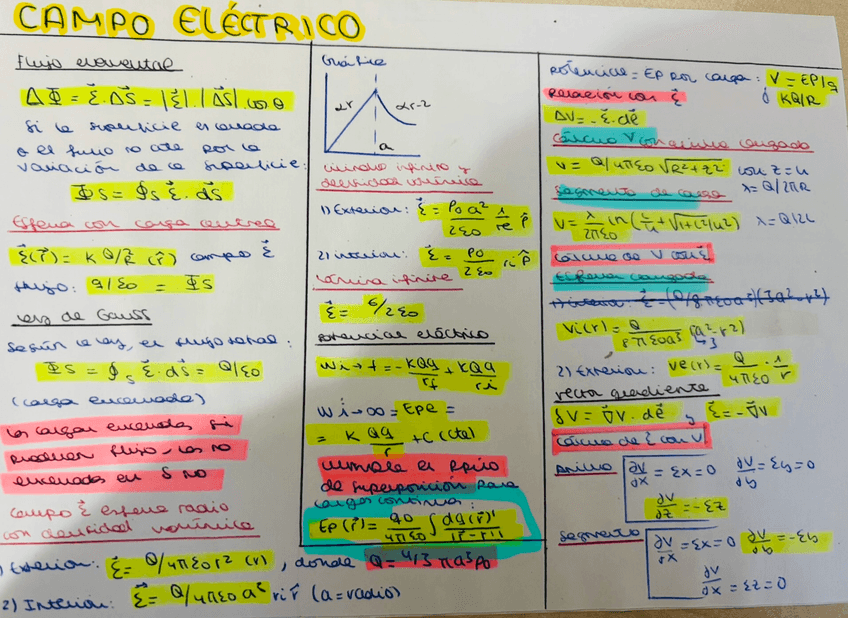 CAMPO ELÉCTRICO
Flujo elemental
ΔΦ = ξ⃗·ΔS⃗ = |ξ⃗|·|ΔS⃗| cos θ
Si la superficie es cerrada
o el flujo no cte por la
variación de la superficie:
ΦS = ∮S ξ⃗·dS⃗
Esfera con carga central
ξ⃗(r⃗) = K Q/R² (r̂) campo ξ⃗
flujo: q/ε0 = ΦS
Ley de Gauss
Según la ley, el flujo total:
ΦS = ∮S ξ⃗·dS⃗ = Q/ε0
(carga encerrada)
Las cargas encerradas si
producen flujo, las no
encerradas en S no
Campo ξ⃗ esfera radio
con densidad volúmica
1) Exterior: ξ⃗ = Q/4πε0r² (r), donde Q = 4/3 πa³ρ0
2) Interior: ξ⃗ = Q/4πε0 a³ ri r̂ (a=radio)
Gráfica
αr
αr-2
a
cilindro infinito y
densidad volúmica
1) Exterior: ξ⃗ = ρ0a²/2ε0 1/re ρ̂
2) interior: ξ⃗ = ρ0/2ε0 ri ρ̂
Lámina infinita
ξ⃗ = σ/2ε0
potencial eléctrico
Wi→f = -KQq/rf + KQq/ri
Wi→∞ = EPe =
= K Qq/r + C (cte)
cumple el ppio
de superposición para
cargas continua:
EP(r⃗) = q0/4πε0 ∫ dq(r⃗)'/|r-r'|
potencial = EP por carga: V = EP/q
ó KQ/R
Relación con ξ⃗
ΔV = -ξ⃗·dℓ⃗
Cálculo V con anillo cargado
V = Q/4πε0 √R²+z² con z=u
λ = Q/2πR
Segmento de carga
V = λ/2πε0 ln (L/u + √1+(L²/u²) λ = Q/2L
Cálculo de V con ξ⃗
Esfera cargada
Vi(r) = Q/8πε0a³ (a²-r²)
↳3
2) Exterior: Ve(r) = Q/4πε0 · 1/r
vector gradiente
∂V = ∇⃗V·dℓ⃗ y ξ⃗ = -∇⃗V
Cálculo de ξ con V
Anillo
∂V/∂x = ξx = 0 ∂V/∂y = ξy = 0
∂V/∂z = -ξz
Segmento
∂V/∂x = ξx = 0 ∂V/∂y = -ξy
∂V/∂x = ξz = 0